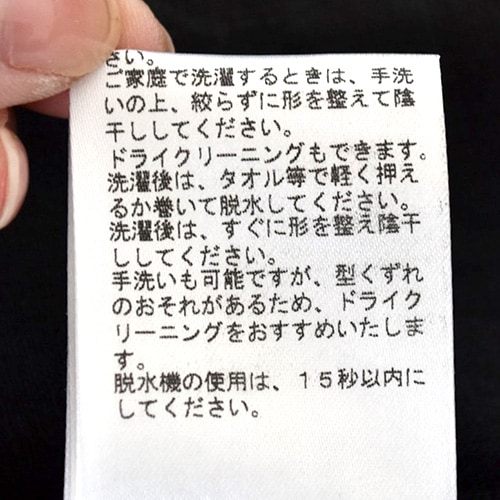 さい。
ご家庭で洗濯するときは、手洗
いの上、絞らずに形を整えて陰
干ししてください。
ドライクリーニングもできます。
洗濯後は、タオル等で軽く押え
るか巻いて脱水してください。
洗濯後は、すぐに形を整え陰干
ししてください。
手洗いも可能ですが、型くずれ
のおそれがあるため、ドライク
リーニングをおすすめいたしま
す。
脱水機の使用は、15秒以内に
してください。